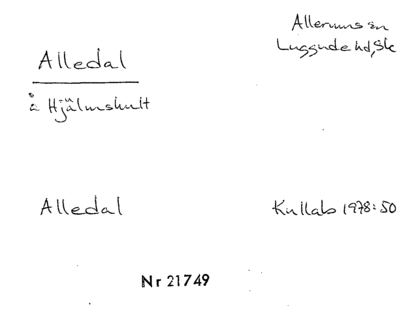 Alledal
Allerums sn
Luggude hd, Sk
å Hjälmshult
Alledal
Kullabs 1978:50
Nr 21749